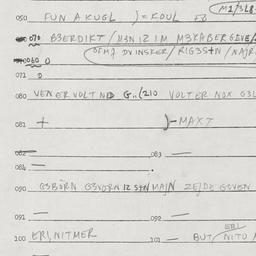 M1/3L8-
050 FUN A KUGL )=KOUL FO
070 B3ERDIKT / M3N IZ IM M3XABERGEVE/
DV INSKER/ RIG3S+N /NAJR
060 0
071 0
080 VEN ER VOLT NID G..(210 VOLTER NOX G3L
081 + )-MAXT
082 —
084 — . 083 —
090 G3BÖRN G3VORN IZ S+N MAJN ZEJDE G3VEN
091 — 092 —
ERI
100 ERI, NITMER 101 — BUT, NITO